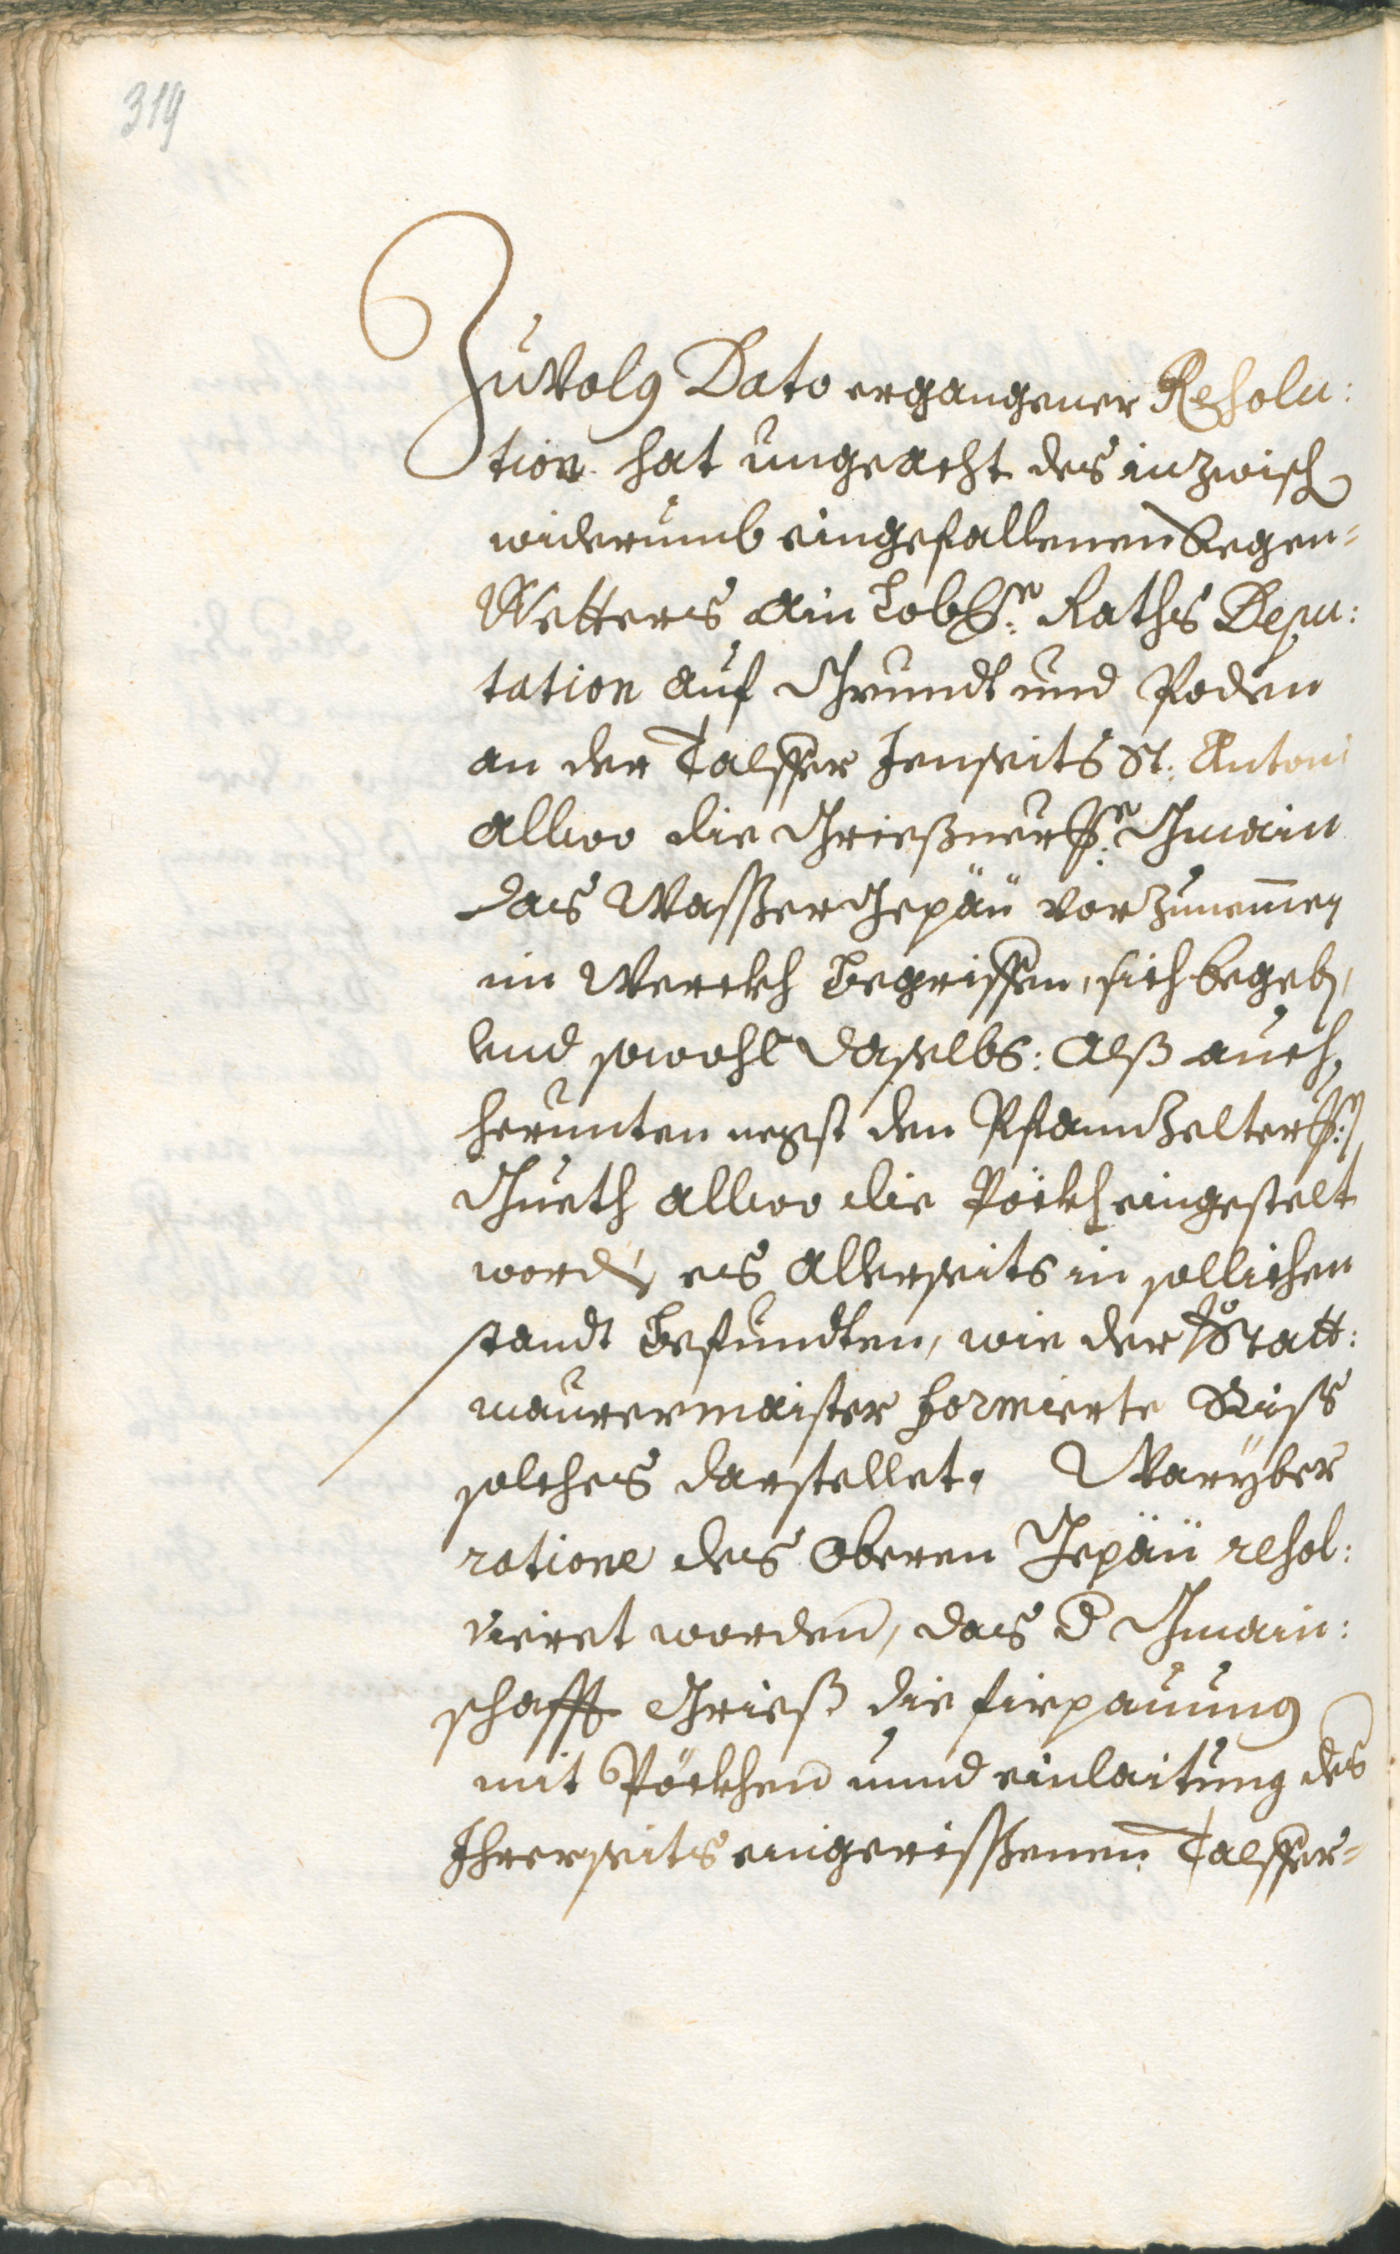 319
Zuvolg Dato ergangener Resolu:
tion hat ungeacht des inzwisch
widerumb eingefallenen Regen=
Wetters Ain Lobl: Raths Depu:
tation auf Grundt und Poden
an der Talffer Jenseits St: Antoni
allwo die Grießnerl: Gmain
das Wasser Gepäu vorzunemen
im Werckh begriffen, sich begeb,
und sowohl daselbs: Alß auch
herunten negst den Pfannzelterl:
Gueth allwo die Pöckh eingestelt
word, es Allerseits in sollichen
standt befundten, wie der Statt:
maurermaister formierte Riss
solches darstellet. Warüber
ratione des Oberen Gepäu resol:
vieret worden, das d Gmain:
schafft Grieß die fürpauung
mit Pöckhen unnd einlaitung des
Ihrerseits eingerissenen Talffer=